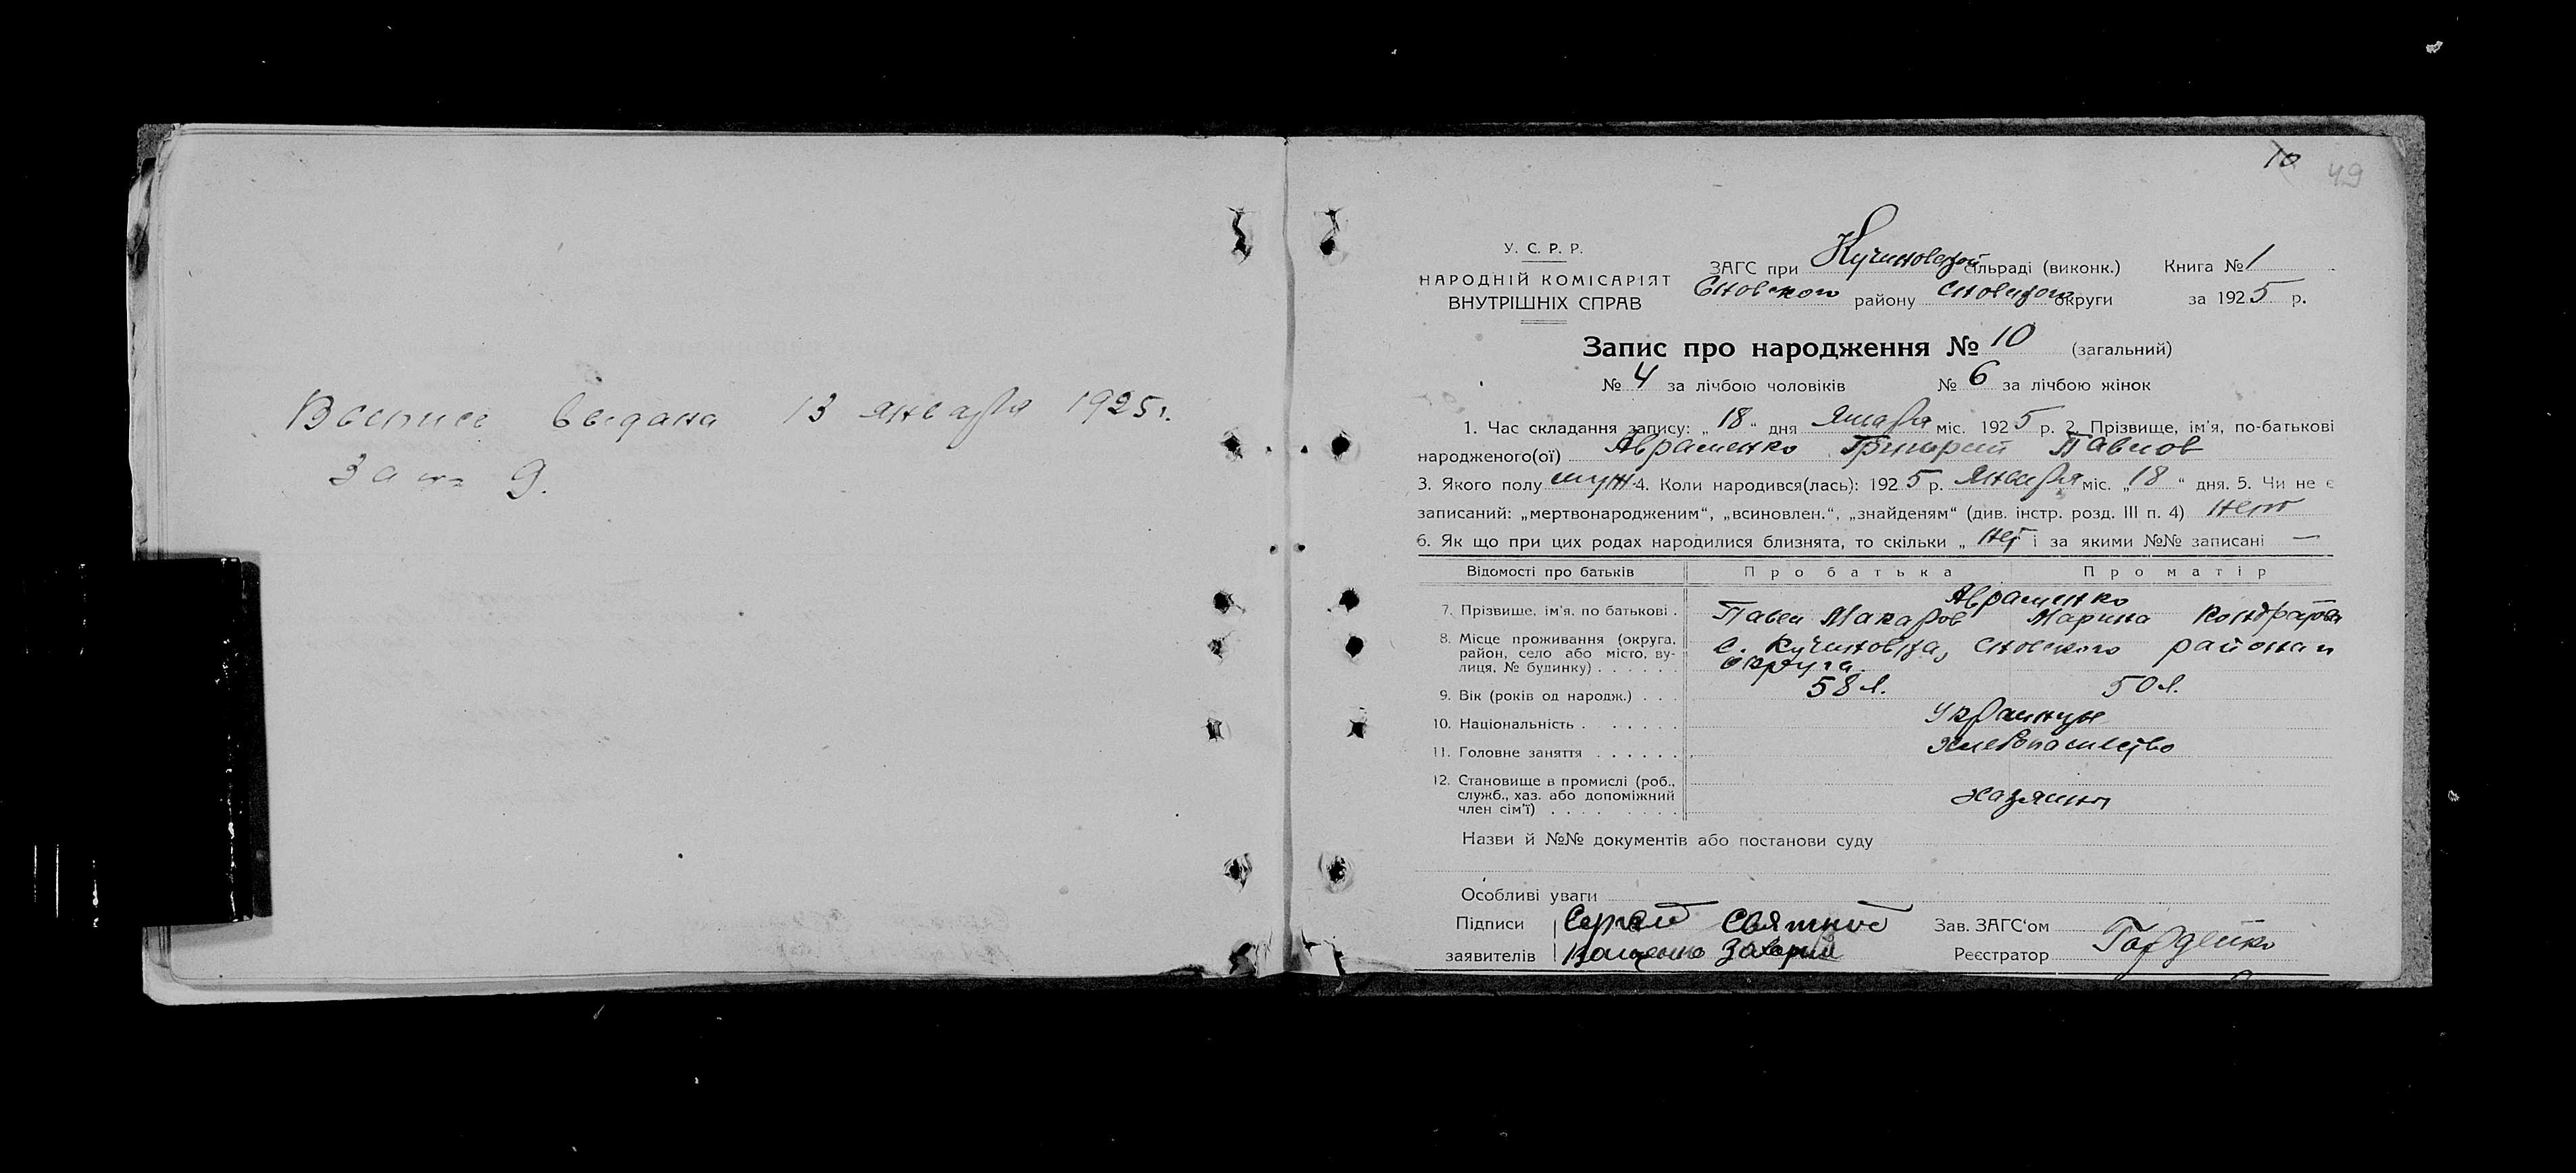 Выпись выдана 13 января 1925 г.
за № 9.
10
49
У. С. Р. Р.
НАРОДНІЙ КОМІСАРІЯТ
ВНУТРІШНІХ СПРАВ
ЗАГС при Кучиновской сільраді (виконк.) Книга № 1
Сновского району Сновского округи за 1925 р.
Запис про народження № 10 (загальний)
№ 4 за лічбою чоловіків № 6 за лічбою жінок
1. Час складання запису: „18“ дня Января міс. 1925 р. 2. Прізвище, ім'я, по-батькові
народженого(ої) Авраменко Григорий Павлов
3. Якого полу муж. 4. Коли народився(лась): 1925 р. Января міс. „18“ дня. 5. Чи не є
записаний: „мертвонародженим“, „всиновлен.“, „знайденям“ (див. інстр. розд. III п. 4) нет
6. Як що при цих родах народилися близнята, то скільки „ нет і за якими №№ записані —
Відомості про батьків Про батька Про матір
Авраменко
7. Прізвище, ім'я, по батькові . Павел Макаров Марина Кондратова
8. Місце проживання (округа, район, село або місто, вулиця, № будинку) . . . . . . с. Кучиновка, Сновского района и округа
9. Вік (років од народж.) . . . 58 л. 50 л.
10. Національність . . . . . . . Украинцы
11. Головне заняття . . . . . . . Хлебопашество
12. Становище в промислі (роб., служб., хаз. або допоміжний член сім'ї) . . . . . . . . Хазяины
Назви й №№ документів або постанови суду
Особливі уваги
Підписи Сергей Святной Зав. ЗАГС'ом
заявителів Ващенко Захарий Реєстратор Гордейко